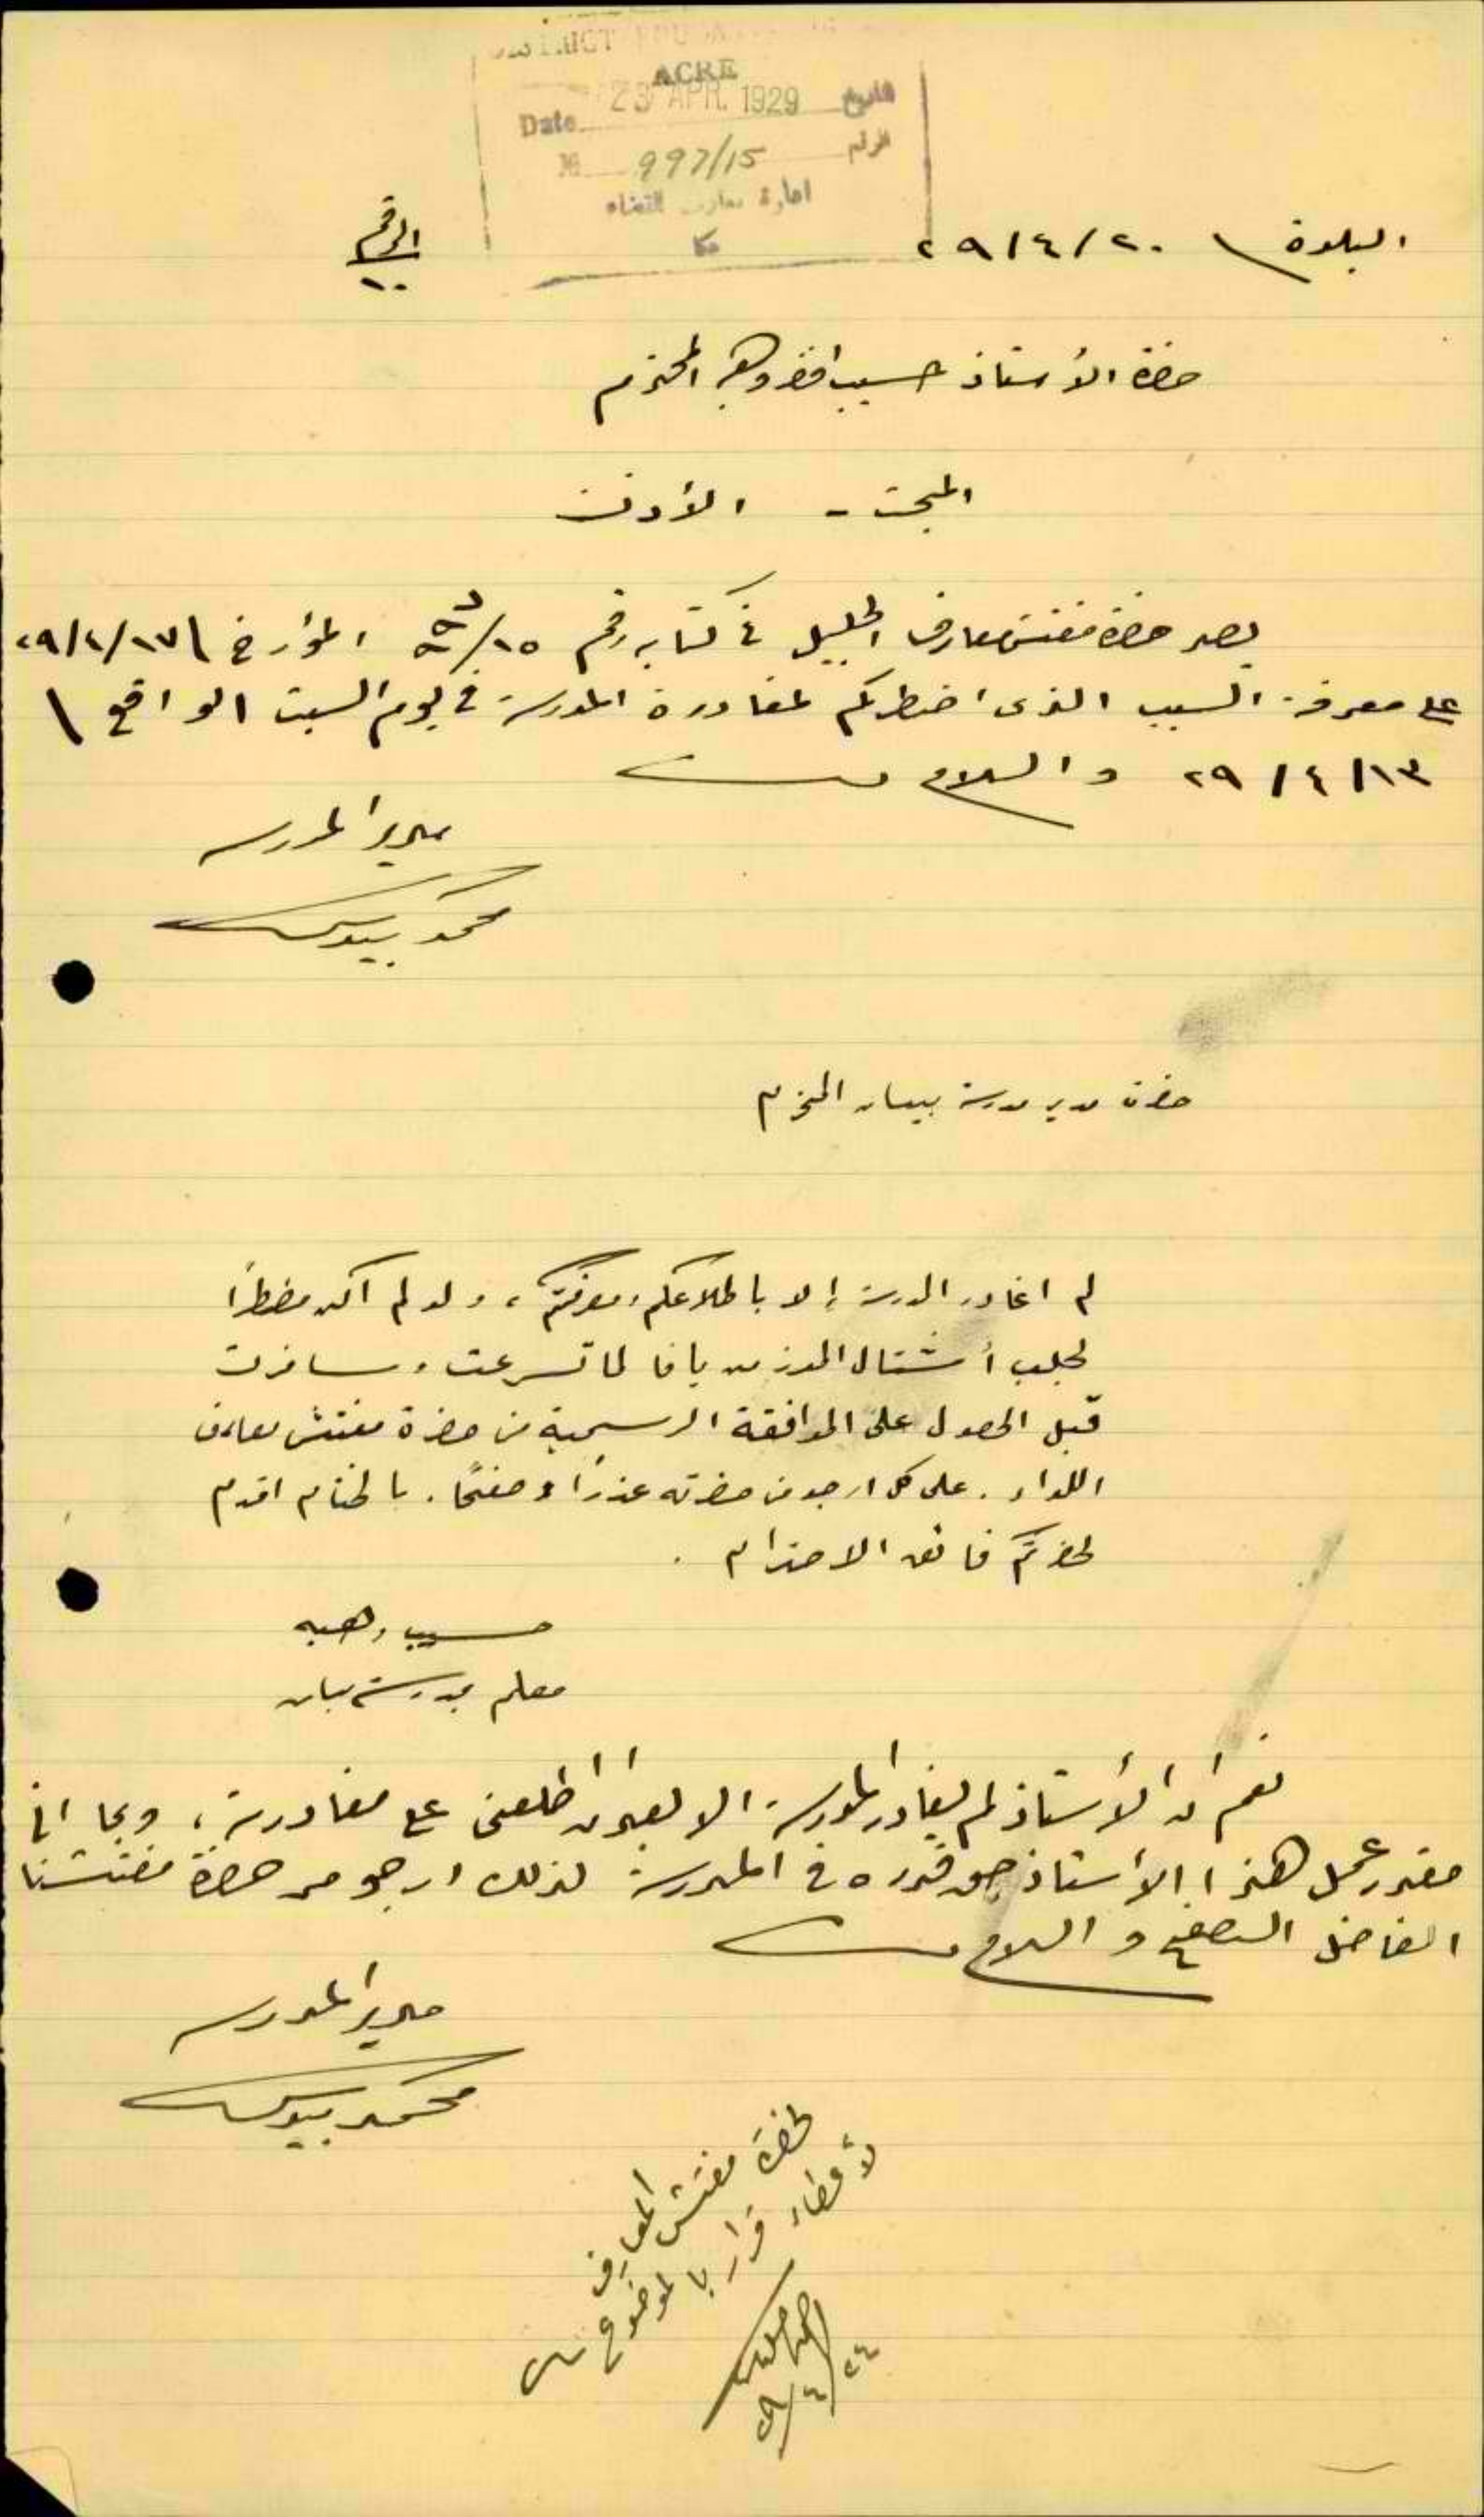 DISTRICT
ACRE
Date 23 APR. 1929 التاريخ
№ 997/15 الرقم
ادارة معارف القضاء
عكا
الرقم
١٠
٢٠/٤/٢٩
حضرة الأستاذ حسيب افندي وهبه المحترم
المبحث - الأذن
يصر حضرة مفتش معارف الجليل في كتابه رقم ١٥/ المؤرخ ١٧/٤/٢٩
على معرفة السبب الذي اضطركم لمغادرة المدرسة في يوم السبت الواقع \
١٣/٤/٢٩ والسلام
مدير المدرسه
محمد بيدس
حضرة مدير مدرسة بيسان المحترم
لم اغادر المدرسة إلا باطلاعكم ومعرفتكم، ولو لم اكن مضطرًا
لجلب أشتال الموز من يافا لما تسرعت وسافرت
قبل الحصول على الموافقة الرسمية من حضرة مفتش معارف
اللواء. على كل ارجو من حضرته عذرًا وصفحًا. بالختام اقدم
لحضرتكم فائق الاحترام.
حسيب وهبه
معلم بمدرسة بيسان
نعم ان الأستاذ لم يغادر المدرسة الا بعد ان اطلعني على مغادرته، وبما اني
مقدر عمل هذا الأستاذ حق قدره في المدرسة لذلك ارجو من حضرة مفتشنا
الفاضل الصفح والسلام
مدير المدرسه
محمد بيدس
لحضرة مفتش المعارف
لأعطاء قرار بالموضوع
٢٤/٤/٢٩